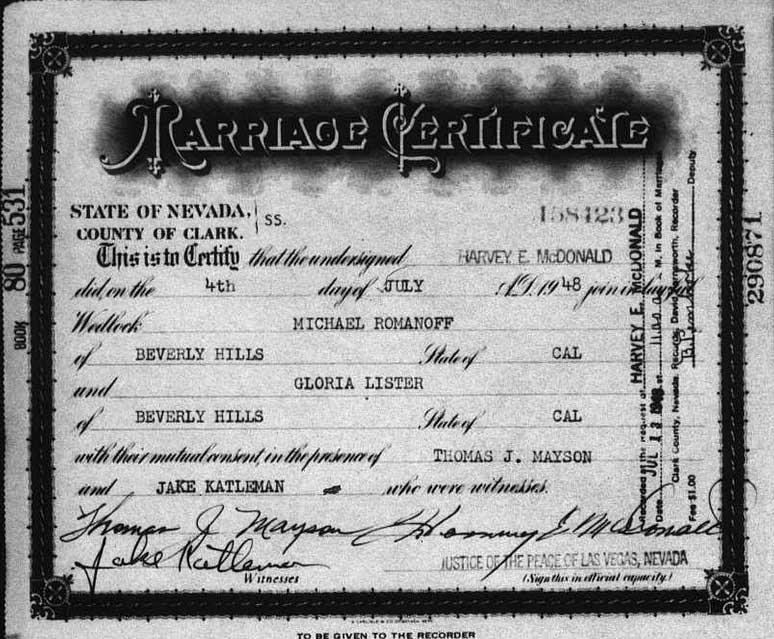 MARRIAGE CERTIFICATE
STATE OF NEVADA, ss.
COUNTY OF CLARK.
158423
This is to Certify that the undersigned HARVEY E. McDONALD
did, on the 4th day of JULY A.D. 1948 join in lawful
Wedlock MICHAEL ROMANOFF
of BEVERLY HILLS State of CAL
and GLORIA LISTER
of BEVERLY HILLS State of CAL
with their mutual consent, in the presence of THOMAS J. MAYSON
and JAKE KATLEMAN who were witnesses.
Thomas J Mayson
Jake Katleman
Witnesses
JUSTICE OF THE PEACE OF LAS VEGAS, NEVADA
(Sign this in official capacity.)
TO BE GIVEN TO THE RECORDER
BOOK 80 PAGE 531
Recorded at the request of HARVEY E. McDONALD
Date JUL 13 at M. in Book of Marriage
Clark County, Nevada, Records, David Recorder
Fee $1.00 By Deputy
290871